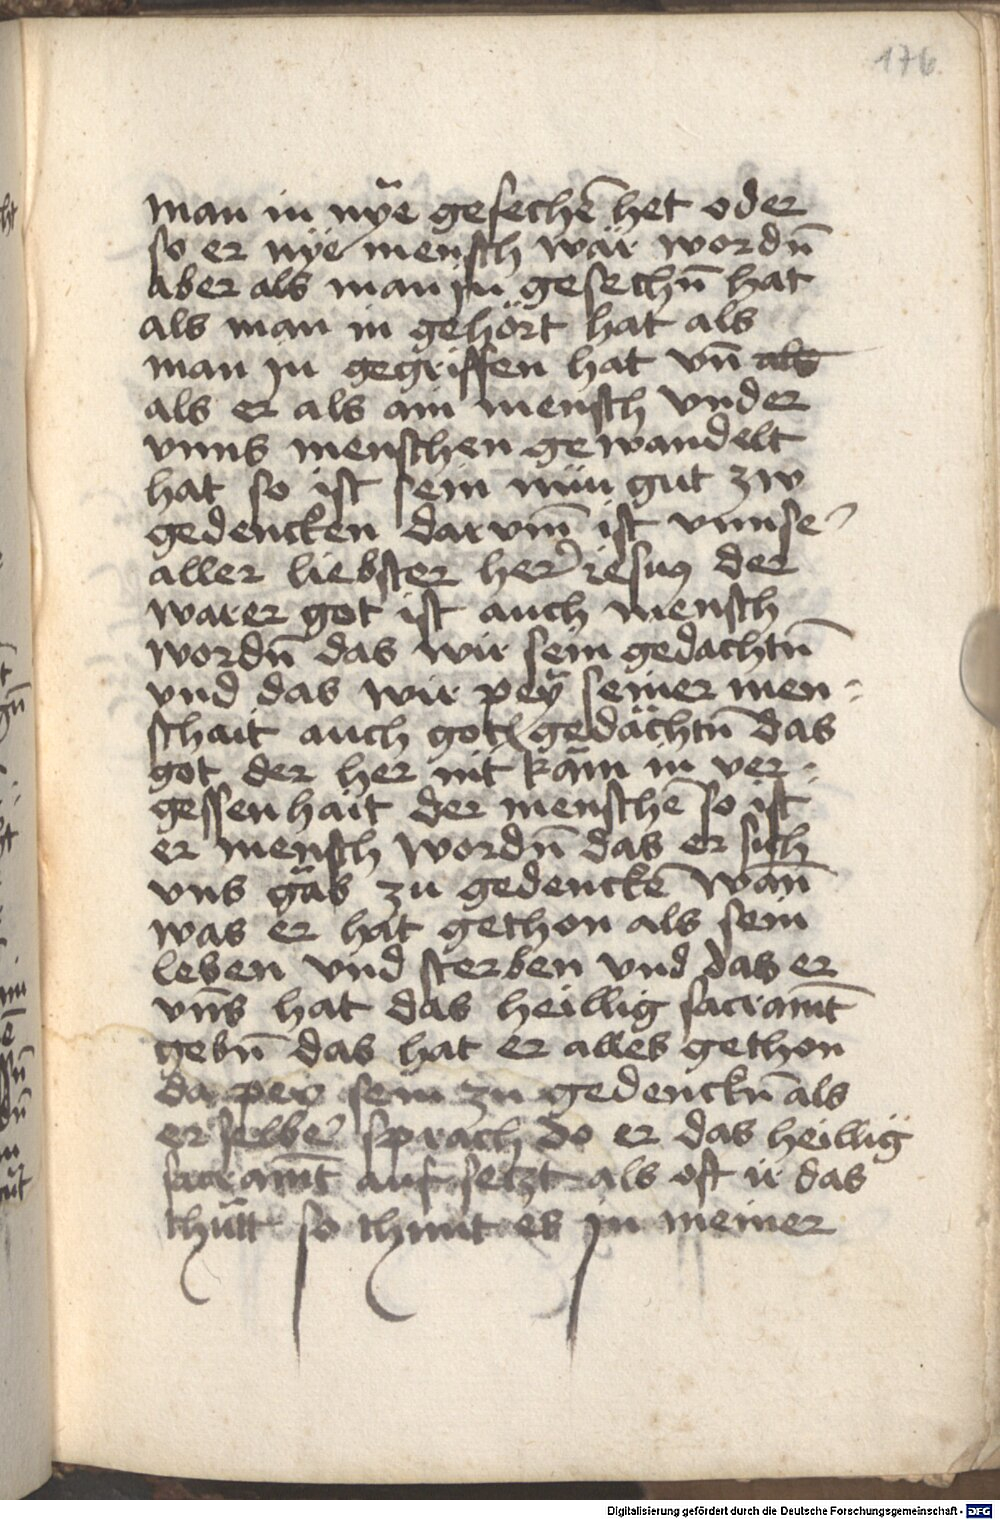 176
man in nÿe gesechē het oder
so er nÿe mensch wär wordn̄
aber als man jn gesechn̄ hat
als man in gehört hat als
man jn gegriffen hat vn̄ als
als er als ain mensch vnder
vnns menschen gewandelt
hat so ist sein nün gut zw
gedencken darvm̄ ist vnnse͛
aller liebster her͛ iesus der
warer got ist auch mensch
wordn̄ das wir sein gedachtn̄
vnd das wir peÿ seiner men-
schait auch gotz gedächtn̄ das
got der her nit käm in ver-
gessenhait der menschē so ist
er mensch wordn̄ das er sich
vns gäb zu gedenckē wan̄
was er hat gethon als sein
leben vnd sterben vnd das er
vn̄s hat das heillig sacramēt
gebn̄ das hat er alles gethon
da pey sein zu gedenckn̄ als
er selbe͛ sprach do er das heillig
sacramēt auf setzt als oft ir das
thütt so thuut es jn meiner
Digitalisierung gefördert durch die Deutsche Forschungsgemeinschaft - DFG